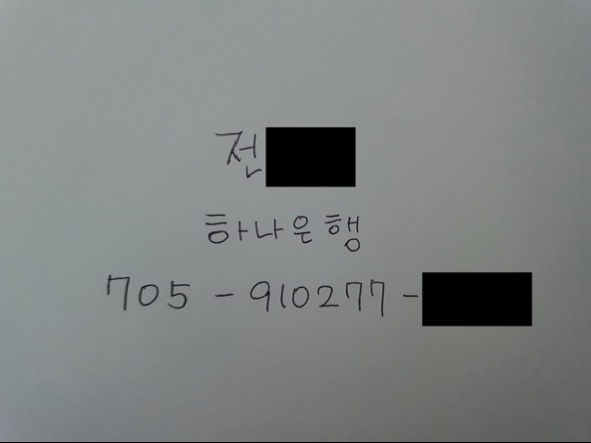 전
하나은행
705 - 910277 -